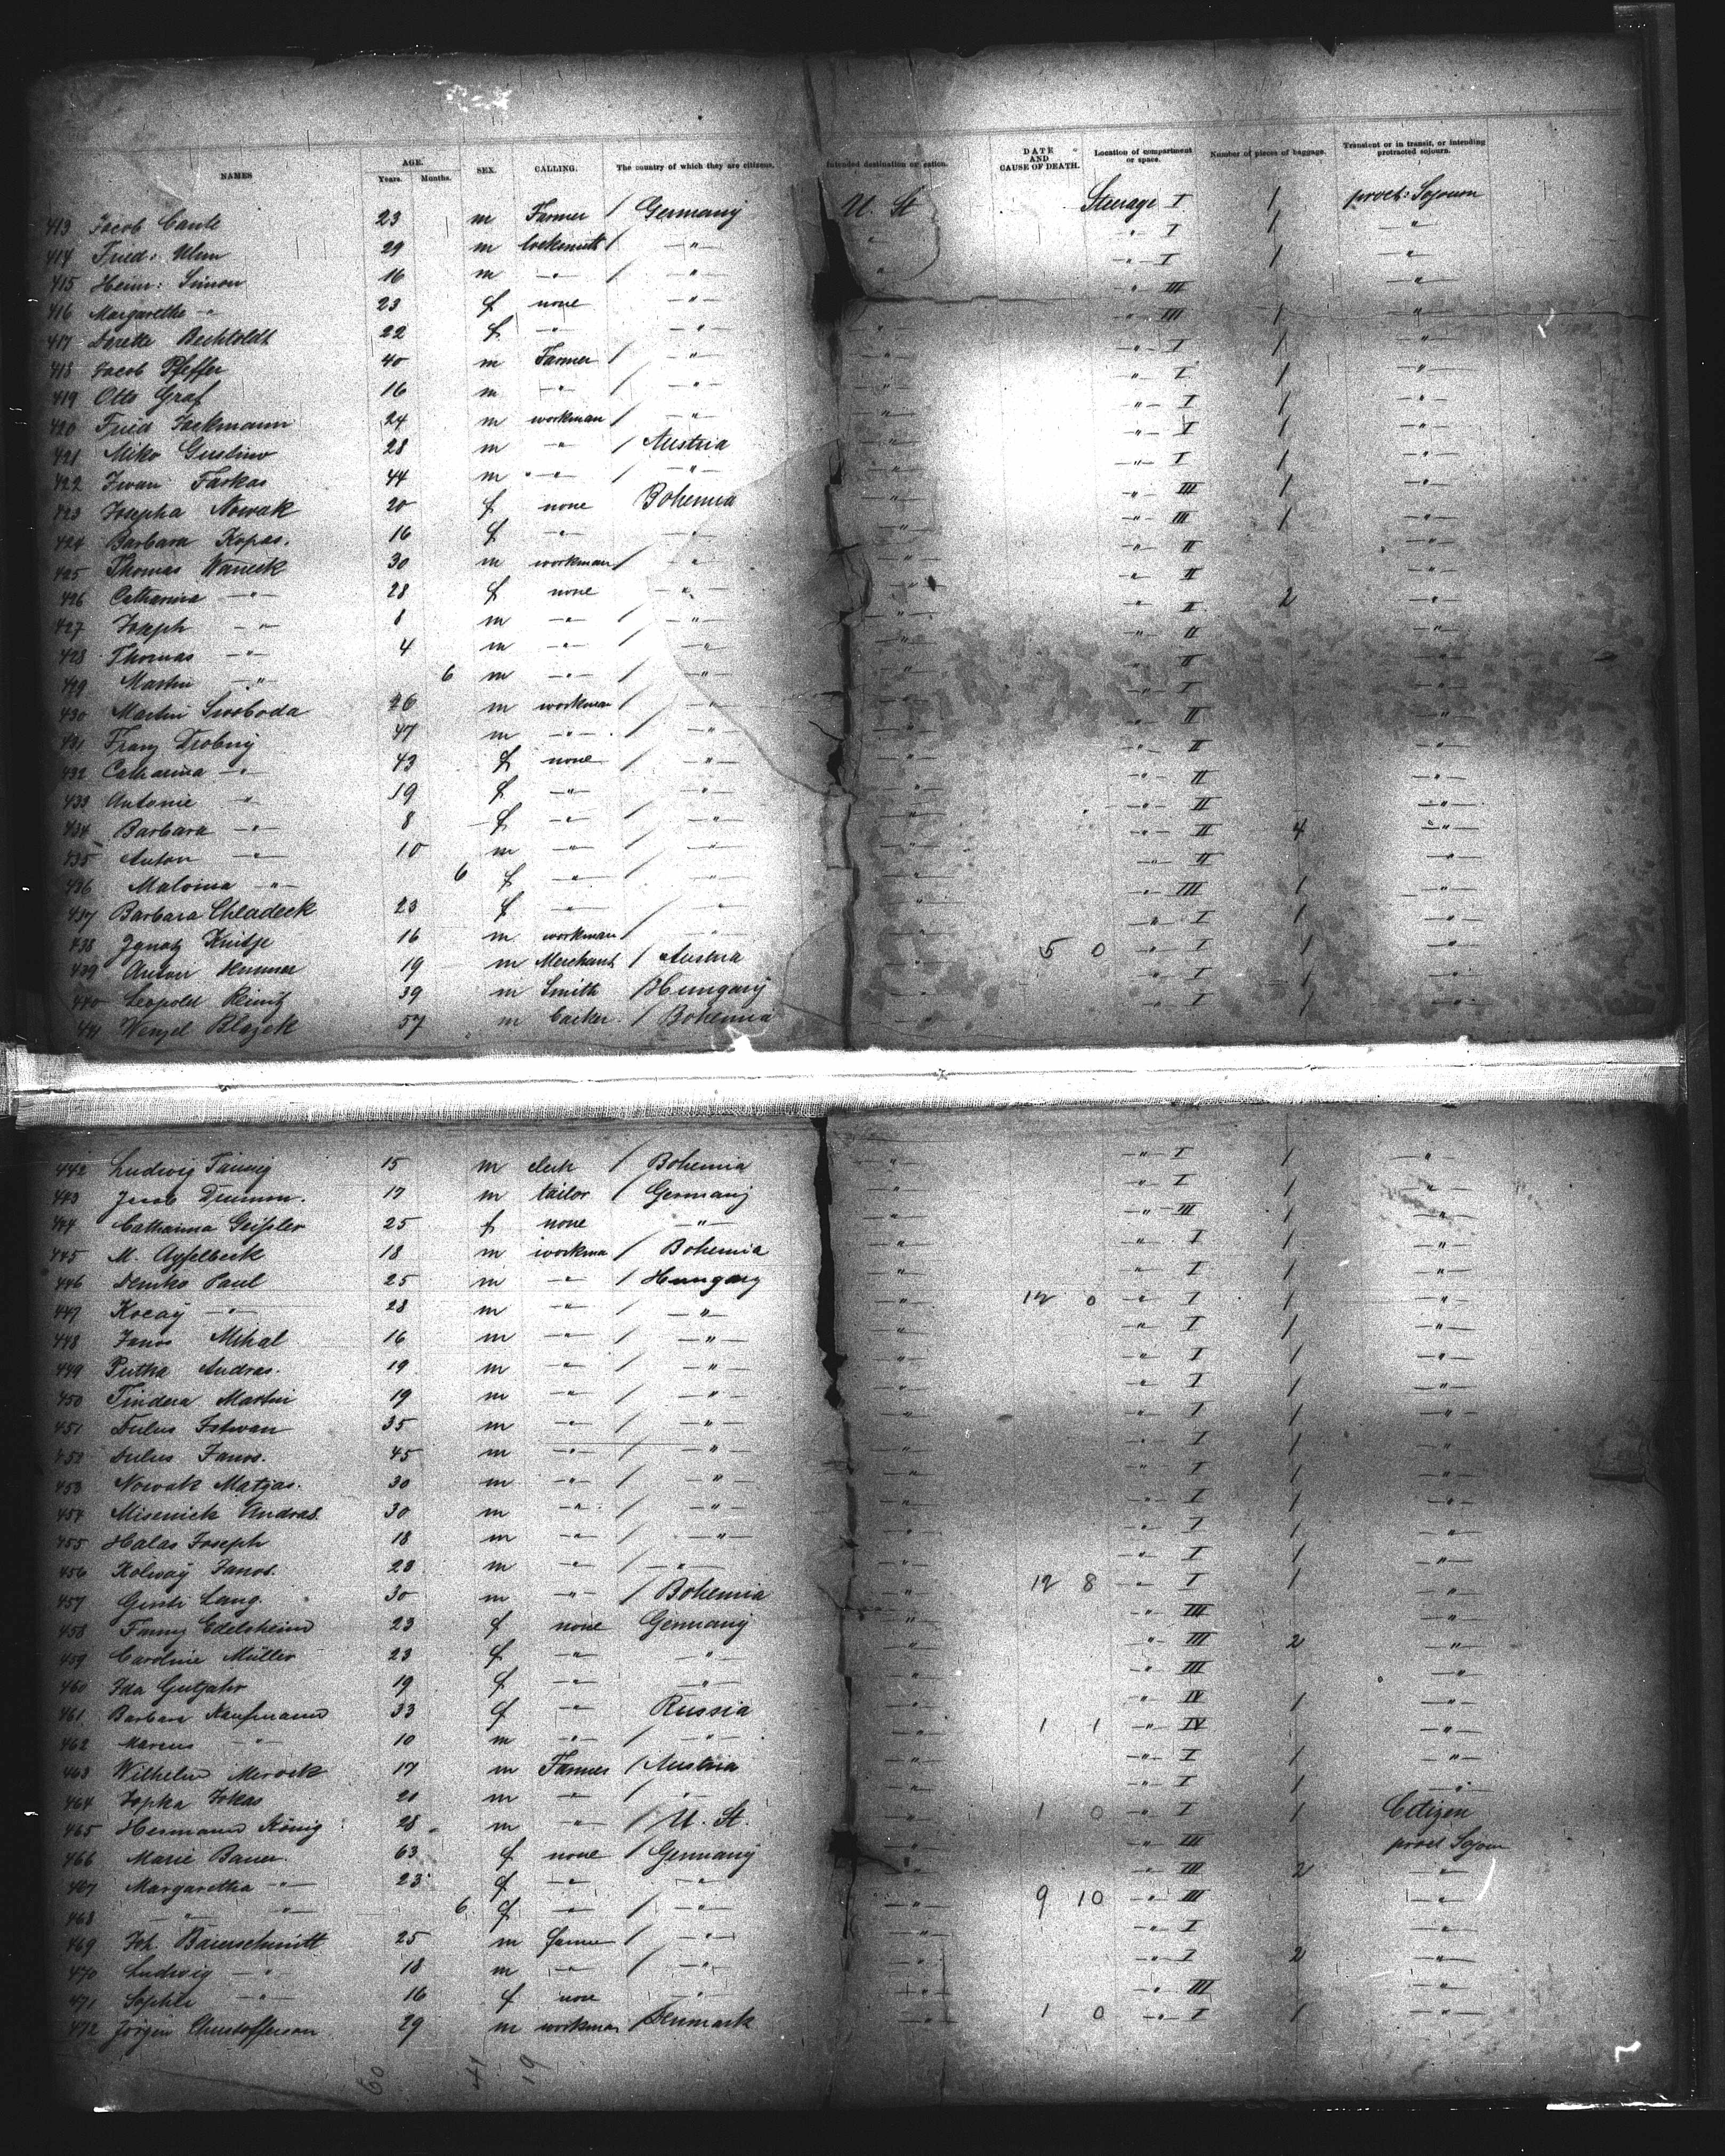 NAMES AGE. Years. Months. SEX. CALLING. The country of which they are citizens. Intended destination or location. DATE AND CAUSE OF DEATH. Location of compartment or space. Number of pieces of baggage. Transient or in transit, or intending protracted sojourn.
413 Jacob 23 m Farmer / Germany U. St Steerage I 1 proct: Sojourn
414 Fried: Ulm 29 m locksmith / -"- " -"- I 1 -"-
415 Heinr: Simon 16 m -"- / -"- " -"- I 1 -"-
416 Margarethe -"- 23 f none -"- -"- III -"-
417 Dorette Bechtoldt 22 f -"- -"- -"- -"- III 1 -"-
418 Jacob Pfeffer 40 m Farmer / -"- -"- -"- I 1 -"-
419 Otto Graf 16 m -"- / -"- -"- -"- I 1 -"-
420 Fried Jackmann 24 m workman / -"- -"- -"- I 1 -"-
421 Miko 28 m -"- / Austria -"- -"- I 1 -"-
422 Iwan Farkas 44 m -"- / -"- -"- -"- I 1 -"-
423 Josepha Nowak 20 f none Bohemia -"- -"- III 1 -"-
424 Barbara Kopas. 16 f -"- -"- -"- -"- III 1 -"-
425 Thomas 30 m workman / -"- -"- -"- II -"-
426 Catharina -"- 28 f none -"- -"- -"- II -"-
427 Joseph -"- 8 m -"- / -"- -"- -"- I 2 -"-
428 Thomas -"- 4 m -"- / -"- -"- -"- II -"-
429 Martin -"- 6 m -"- / -"- -"- -"- II -"-
430 Martin Swoboda 26 m workman / -"- -"- -"- I -"-
431 Franz Drobny 47 m -"- / -"- -"- -"- II -"-
432 Catharina -"- 43 f none / -"- -"- -"- II -"-
433 Antonie -"- 19 f -"- -"- -"- -"- II -"-
434 Barbara -"- 8 f -"- / -"- -"- -"- II -"-
435 Anton -"- 10 m -"- / -"- -"- -"- II 4 -"-
436 Malvina -"- 6 f -"- / -"- -"- -"- II -"-
437 Barbara Chladeck 23 f -"- / -"- -"- -"- III 1 -"-
438 Ignatz 16 m workman / -"- -"- -"- I 1 -"-
439 Anton 19 m Merchant / Austria -"- 5 0 -"- I 1 -"-
440 Leopold 39 m Smith / Hungary -"- -"- I 1 -"-
441 Wenzel Blazek 57 m / Bohemia -"- -"- I 1
442 Ludwig 15 m clerk / Bohemia -"- -"- I 1 -"-
443 Jacob 17 m tailor / Germany -"- -"- I 1 -"-
444 Catharina Geißler 25 f none -"- -"- -"- III 1 -"-
445 M. 18 m workman / Bohemia -"- -"- I 1 -"-
446 Paul 25 m -"- / Hungary -"- -"- I 1 -"-
447 -"- 28 m -"- / -"- -"- 12 0 -"- I 1 -"-
448 Janos Mihal 16 m -"- / -"- -"- -"- I 1 -"-
449 Putka Andras. 19 m -"- / -"- -"- -"- I 1 -"-
450 Tindera Martin 19 m -"- / -"- -"- -"- I 1 -"-
451 Istwan 35 m -"- / -"- -"- -"- I 1 -"-
452 Janos. 45 m -"- / -"- -"- -"- I 1 -"-
453 Nowak Matyas. 30 m -"- / -"- -"- -"- I 1 -"-
454 Andras. 30 m -"- / -"- -"- -"- I 1 -"-
455 Halas Joseph 18 m -"- / -"- -"- -"- I 1 -"-
456 Janos. 28 m -"- / -"- -"- -"- I 1 -"-
457 Lang. 30 m -"- / Bohemia -"- 12 8 -"- I 1 -"-
458 Fanny Edelsheim 23 f none Germany -"- -"- III -"-
459 Caroline Müller 23 f -"- -"- -"- -"- III 2 -"-
460 Ida Gutjahr 19 f -"- -"- -"- -"- III -"-
461 Barbara Kaufmann 33 f -"- Russia -"- -"- IV 1 -"-
462 Marcus -"- 10 m -"- / -"- -"- 1 1 -"- IV -"-
463 Wilhelm 17 m Farmer / Austria -"- -"- I 1 -"-
464 20 m -"- / -"- -"- -"- I 1 -"-
465 Hermann König 28 m -"- / U. St. -"- 1 0 -"- I 1 Citizen
466 Marie Bauer. 63 f none / Germany -"- -"- III proct Sojourn
467 Margaretha -"- 23 f -"- -"- -"- -"- III 2 -"-
468 -"- -"- 6 f -"- / -"- -"- 9 10 -"- III -"-
469 Joh. Baierschmitt 25 m farmer / -"- -"- -"- I -"-
470 Ludwig -"- 18 m -"- / -"- -"- -"- I 2 -"-
471 Sophie -"- 16 f none -"- -"- -"- III -"-
472 Jörgen Christofferson 29 m workman / Denmark -"- 1 0 -"- I 1 -"-
60 41 19